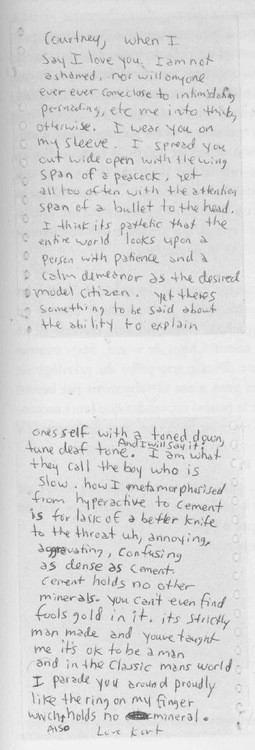 Courtney, when I
say I love you I am not
ashamed, nor will anyone
ever ever come close to intimidating
persuading, etc me into thinking
otherwise. I wear you on
my sleeve. I spread you
out wide open with the wing
span of a peacock, yet
all too often with the attention
span of a bullet to the head.
I think its pathetic that the
entire world looks upon a
person with patience and a
calm demeanor as the desired
model citizen. yet theres
something to be said about
the ability to explain
onesself with a toned down
tune deaf tone. And I will say it:
I am what
they call the boy who is
slow. how I metamorphosised
from hyperactive to cement
is for lack of a better knife
to the throat uh, annoying,
aggrevating, confusing
as dense as cement.
cement holds no other
minerals. you can't even find
fools gold in it. its strictly
man made and youve taught
me it's ok to be a man
and in the classic mans world
I parade you around proudly
like the ring on my finger
which holds no mineral.
Also
Love Kurt